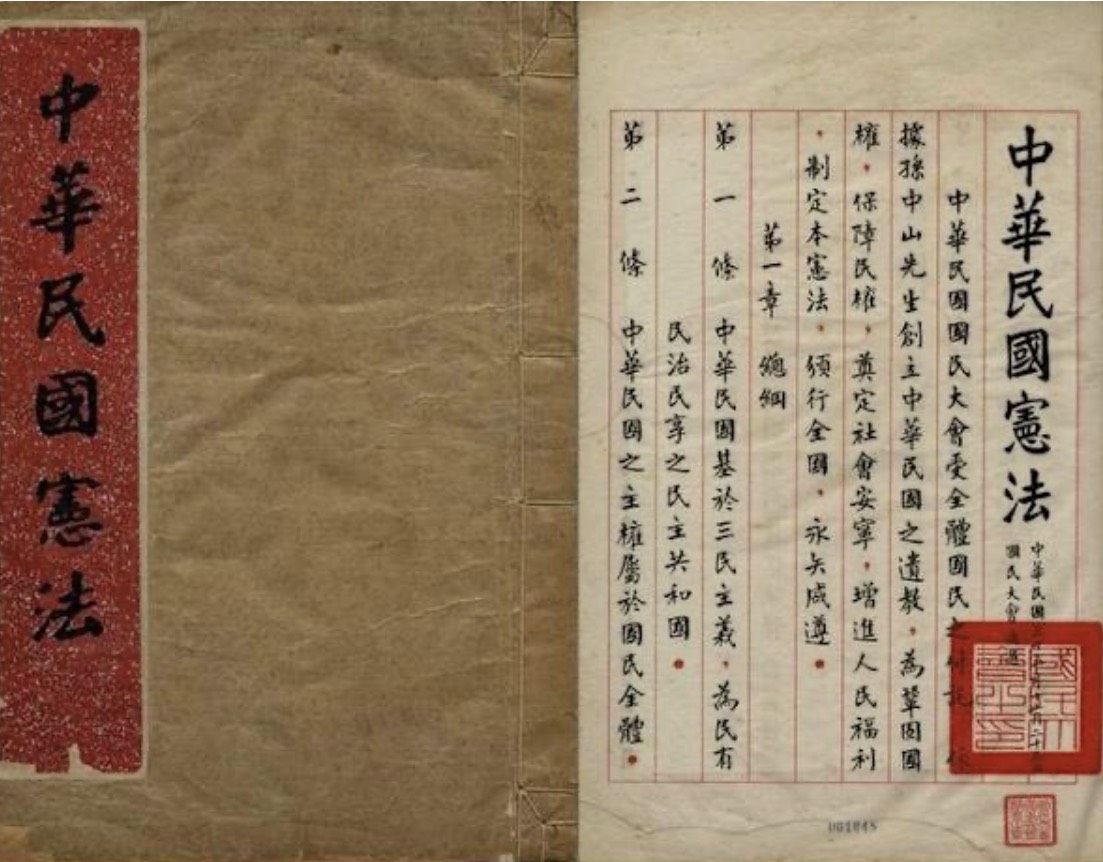 中華民國憲法
中華民國憲法
中華民國
國民大會通過
中華民國國民大會受全體國民之付託,依
據孫中山先生創立中華民國之遺教,為鞏固國
權,保障民權,奠定社會安寧,增進人民福利
,制定本憲法,頒行全國,永矢咸遵。
第一章 總綱
第一條 中華民國基於三民主義,為民有
民治民享之民主共和國。
第二條 中華民國之主權屬於國民全體。
國民大會之印